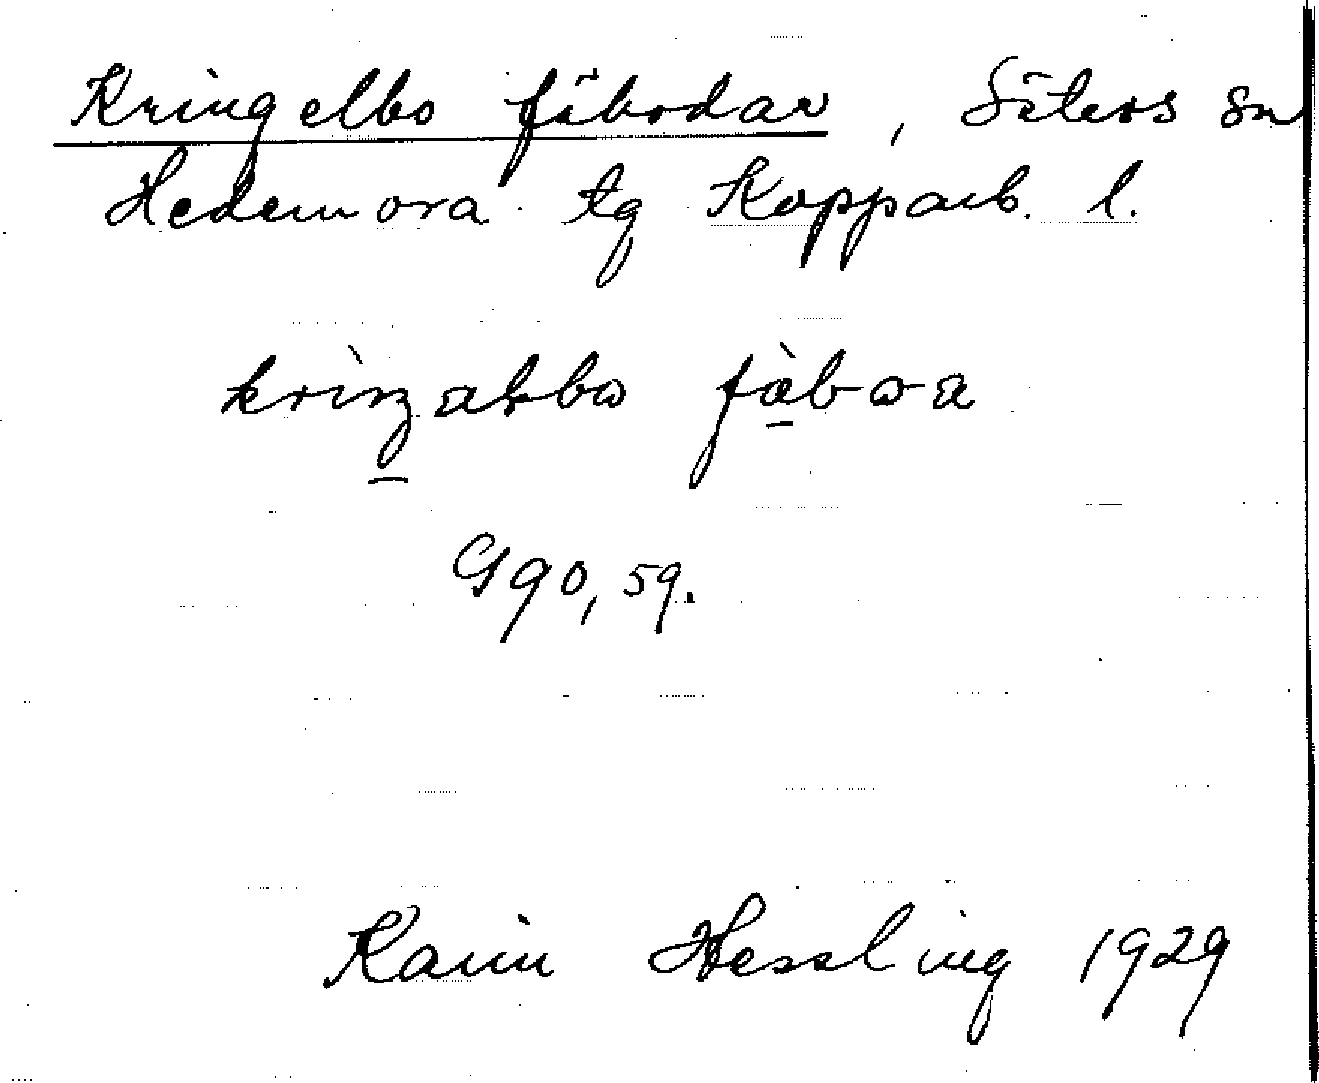 Kringelbo fäbodar, Säters sn
Hedemora tg Kopparb. l.
kriŋabbω fäbωa
G90, 59.
Karin Hessling 1929